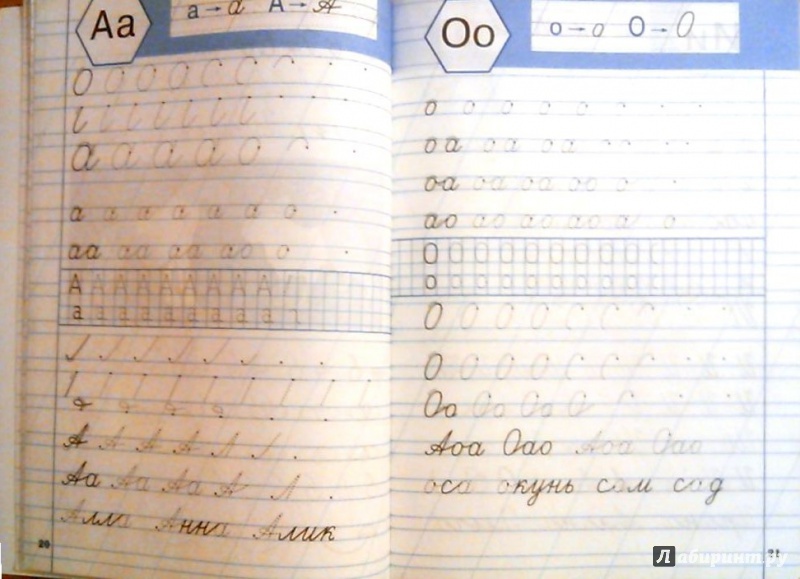 Аа
а → а А → А
О О О О С С
а а а а о
а а а а а а о
аа аа аа ао о
А А А А А А А А А
а а а а а а а а а
А А А А Л
Аа Аа Аа А Л
Алла Анна Алик
20
Оо
о → о О → О
о о о о о
оа оа оа
оа оа оа оо о
ао ао ао ао а о
О О О О О О О О О
о о о о о о о о о
О О О О С С
О О О О С С
Оо Оо Оо О
Аоа Оао Аоа Оао
оса окунь сом сад
21
Лабиринт.ру